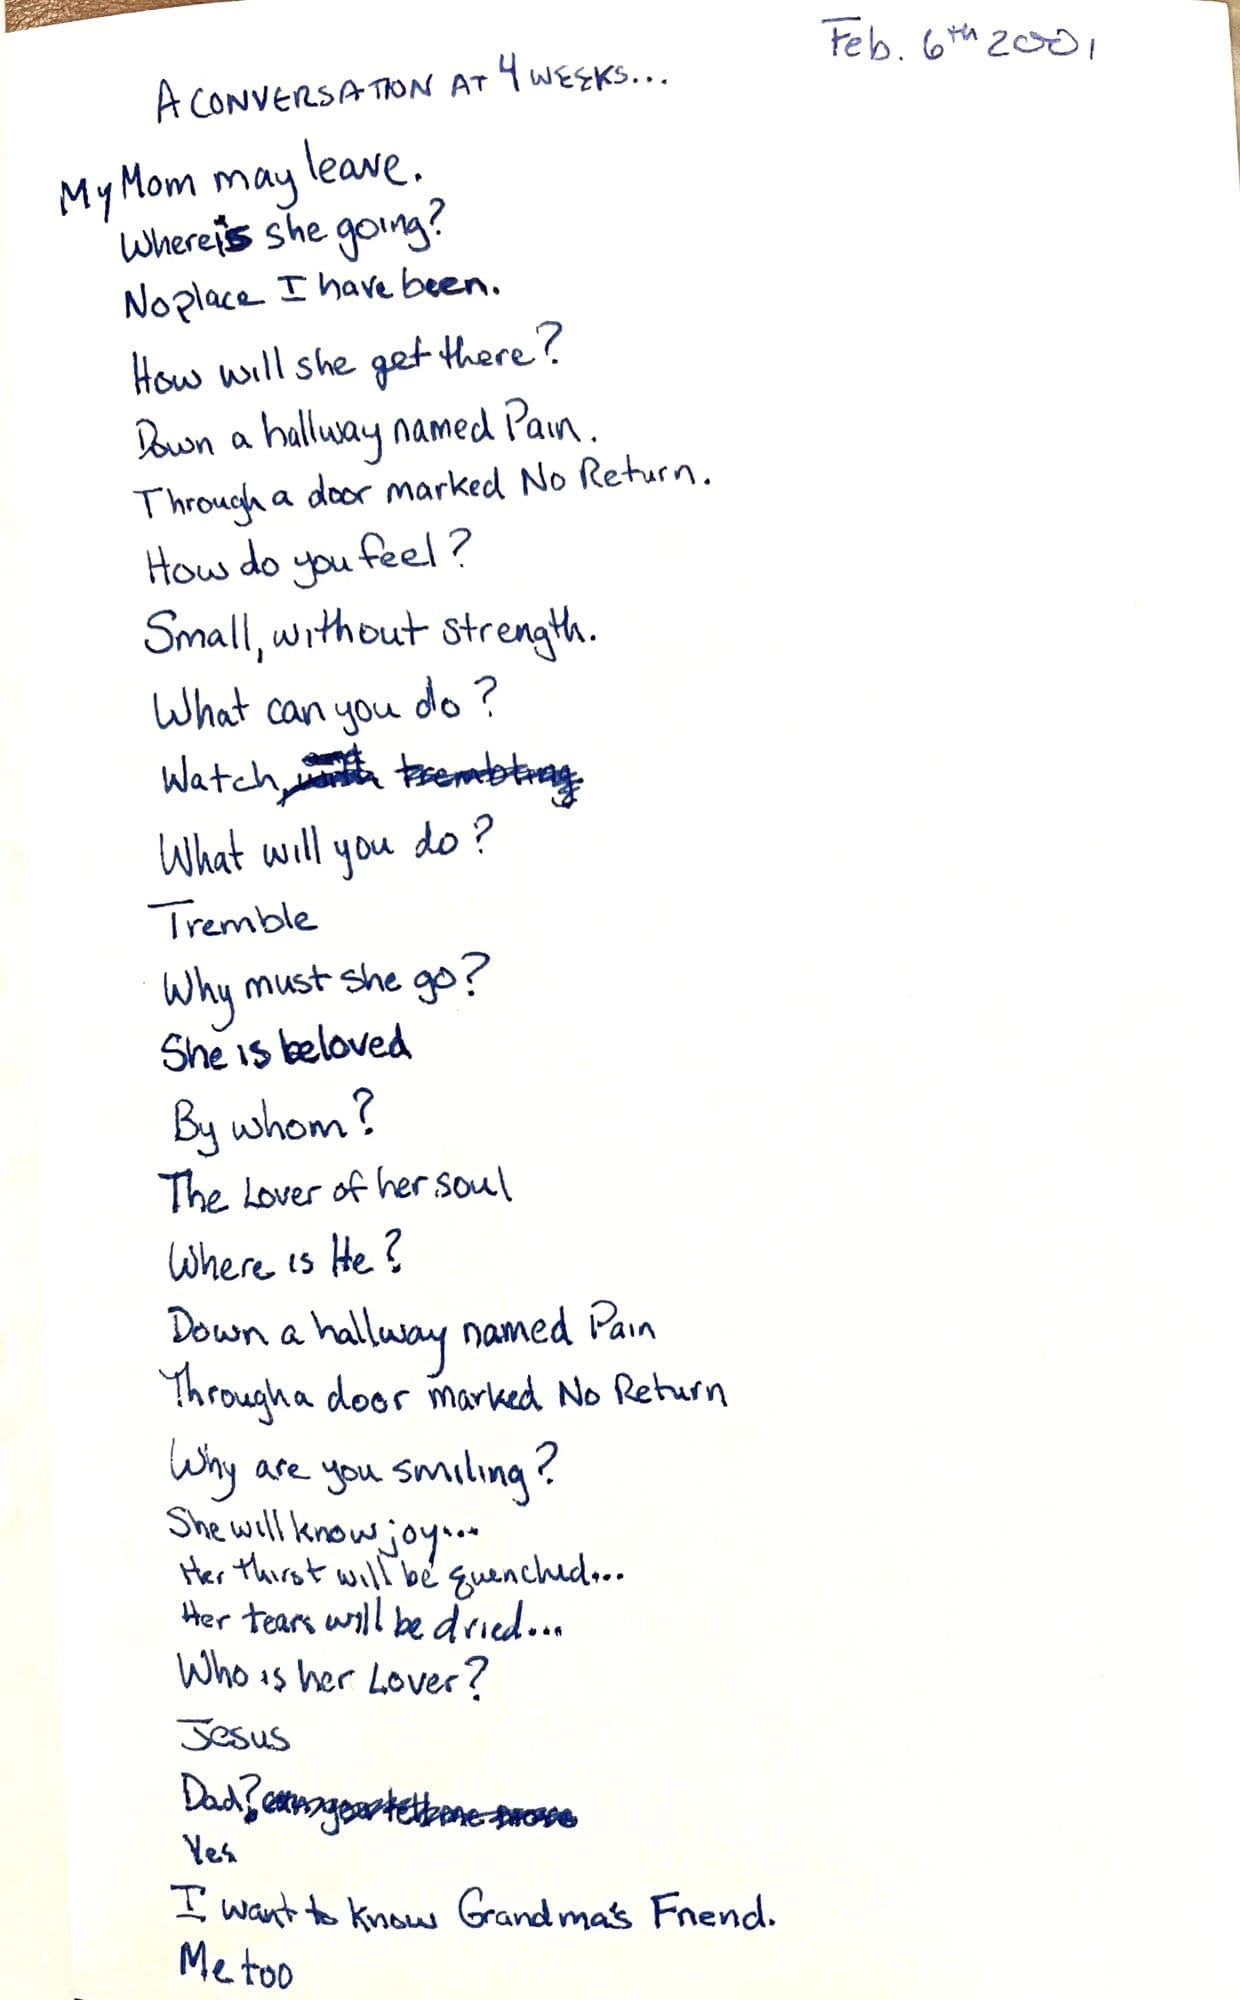 Feb. 6th 2001
A CONVERSATION AT 4 WEEKS...
My Mom may leave.
Where is she going?
No place I have been.
How will she get there?
Down a hallway named Pain.
Through a door marked No Return.
How do you feel?
Small, without strength.
What can you do?
Watch, with trembling.
What will you do?
Tremble
Why must she go?
She is beloved
By whom?
The Lover of her soul
Where is He?
Down a hallway named Pain
Through a door marked No Return
Why are you smiling?
She will know joy...
Her thirst will be quenched...
Her tears will be dried...
Who is her Lover?
Jesus
Dad? can you tell me more
Yes
I want to know Grandma's Friend.
Me too